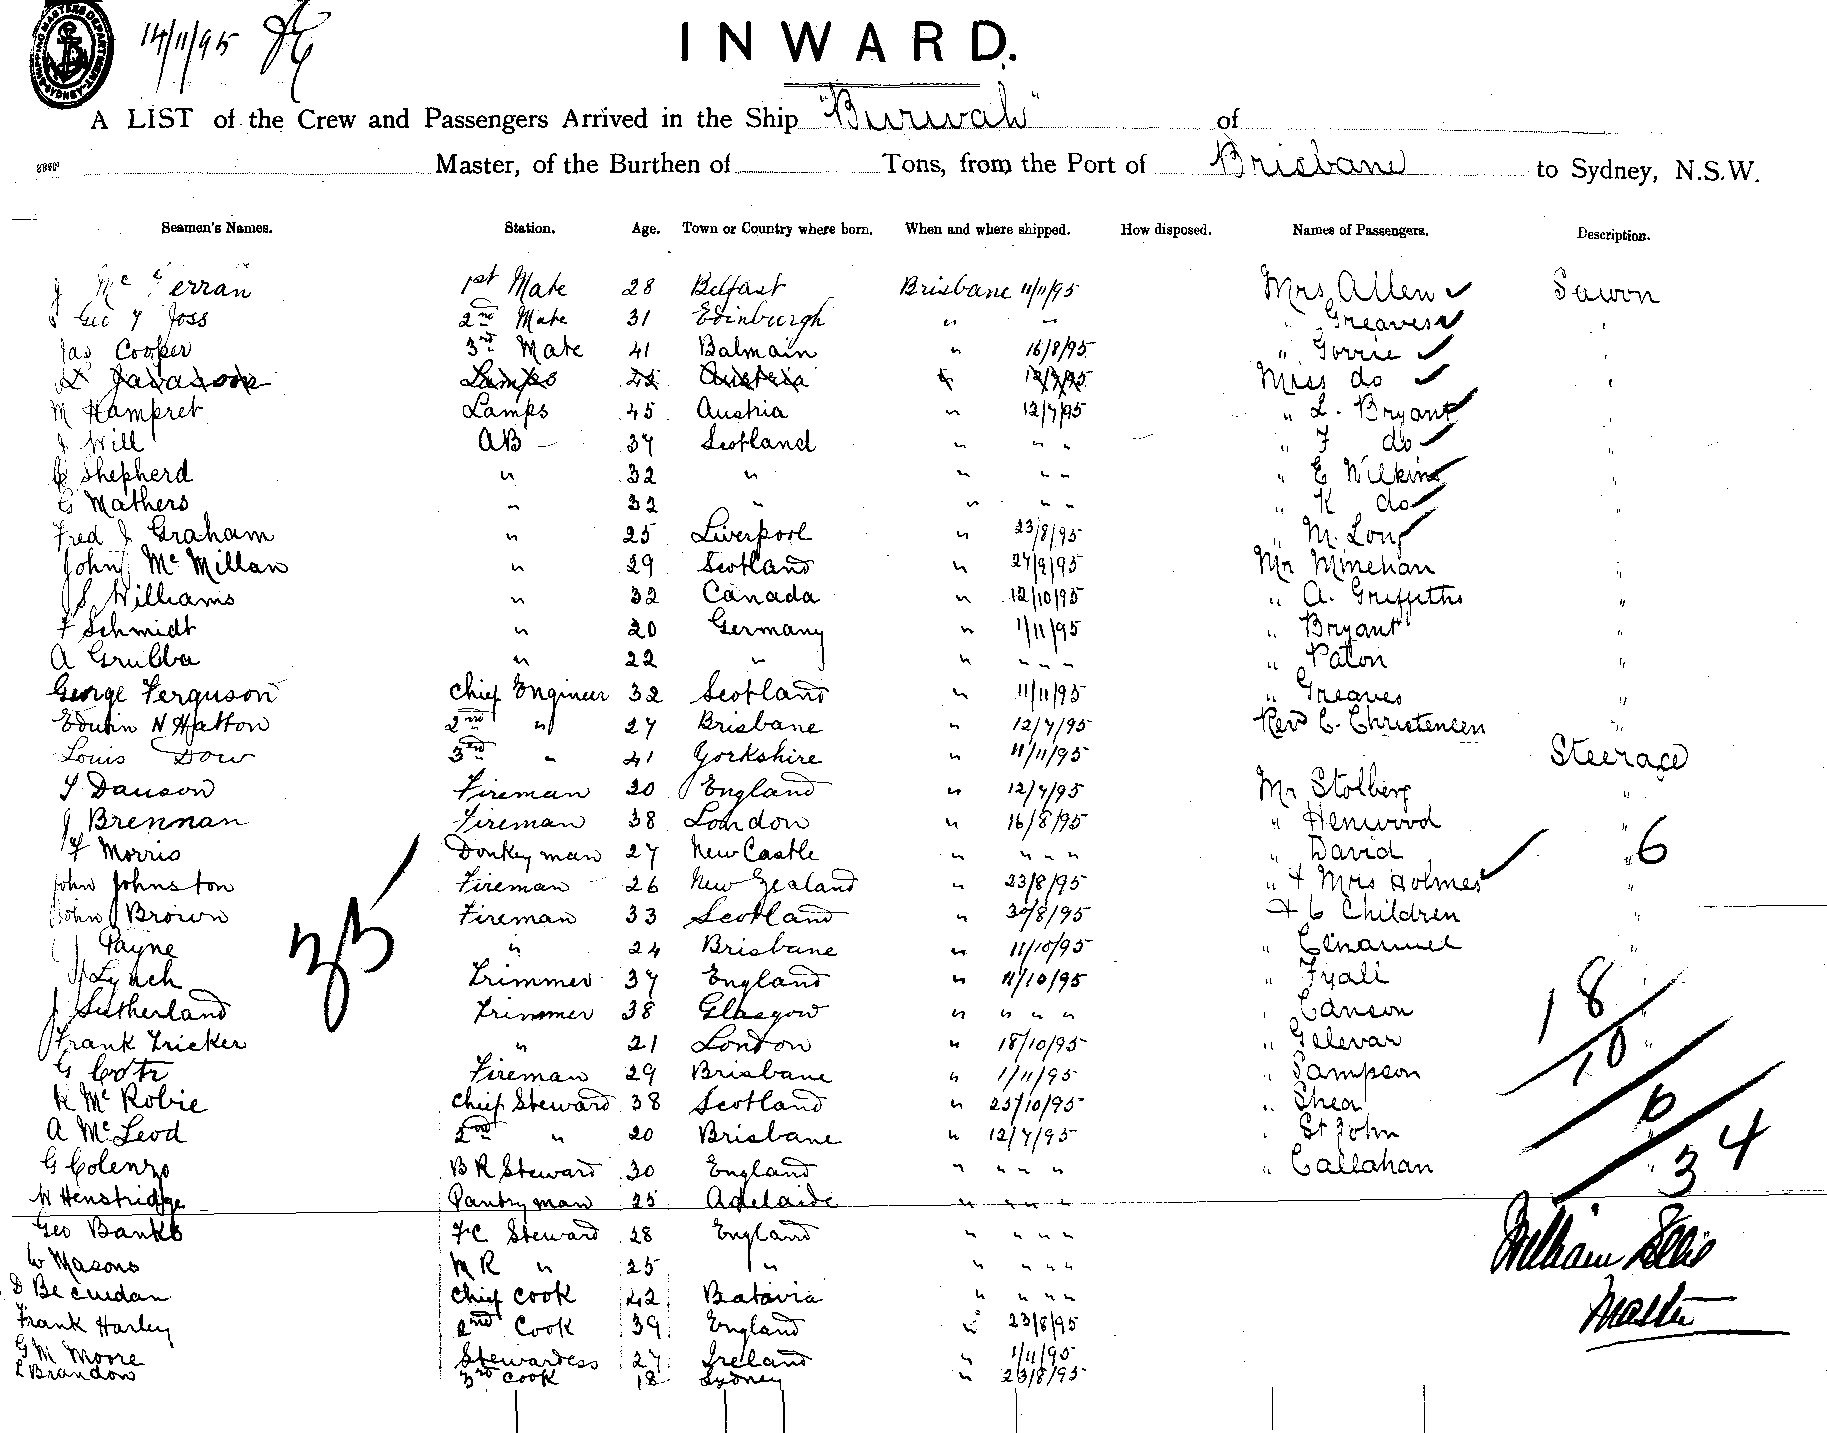 14/11/95
INWARD.
A LIST of the Crew and Passengers Arrived in the Ship "Burwah" of
Master, of the Burthen of Tons, from the Port of Brisbane to Sydney, N.S.W.
Seamen's Names. Station. Age. Town or Country where born. When and where shipped. How disposed. Names of Passengers. Description.
1st Mate 28 Belfast Brisbane 11/11/95 Mrs Allen
Geo Joss 2nd Mate 31 Edinburgh " " " Greaves "
Jas Cooper 3rd Mate 41 Balmain " 16/8/95 " Gorrie "
Lamps Austria Miss do "
M Hampret Lamps 45 Austria " 12/7/95 " L. Bryant
J Will AB 37 Scotland " " " " F do "
Shepherd " 32 " " " " " E Wilkins "
G Mathers " 32 " " " " " K do "
Fred J Graham " 25 Liverpool " 23/8/95 " M. Long "
John McMillan " 29 Scotland " 27/9/95 Mr Minehan "
J S Williams " 32 Canada " 12/10/95 " A. Griffiths "
F Schmidt " 20 Germany " 1/11/95 " Bryant "
A Grubba " 22 " " " " " " Paton "
George Ferguson Chief Engineer 32 Scotland " 11/11/95 " Greaves "
Edwin N Hatton 2nd " 27 Brisbane " 12/7/95 Revd C. Christensen "
Louis Dow 3rd " 41 Yorkshire " 11/11/95 Steerage
Dawson Fireman 20 England " 12/7/95 Mr Stolberg "
J Brennan Fireman 38 London " 16/8/95 " Henwood "
Morris Donkeyman 27 NewCastle " " " " " David " 6
John Johnston Fireman 26 New Zealand " 23/8/95 " + Mrs Holmes "
John Brown Fireman 33 Scotland " 30/8/95 + 6 Children "
J Payne " 24 Brisbane " 11/10/95 " "
Lynch Trimmer 37 England " 11/10/95 "
J Sutherland Trimmer 38 Glasgow " " " " " 18
Frank Tricker " 21 London " 18/10/95 " 10
G Fireman 29 Brisbane " 1/11/95 " Sampson
K McRobie Chief Steward 38 Scotland " 25/10/95 " Shea 6
A McLeod 2nd " 20 Brisbane " 12/7/95 " St John
G Colenzo BR Steward 30 England " " " " " Callahan 34
35
W Henstridge Pantryman 25 Adelaide " " " "
Geo Banks FC Steward 28 England " " " "
W Masons MR " 25 " " " " "
D Chief Cook 42 Batavia " " " "
Frank Harley 2nd Cook 39 England " 23/8/95
G M Moore Stewardess 27 Ireland " 1/11/95
L Brandon 3rd Cook 18 Sydney " 23/8/95
William Ellis
Master